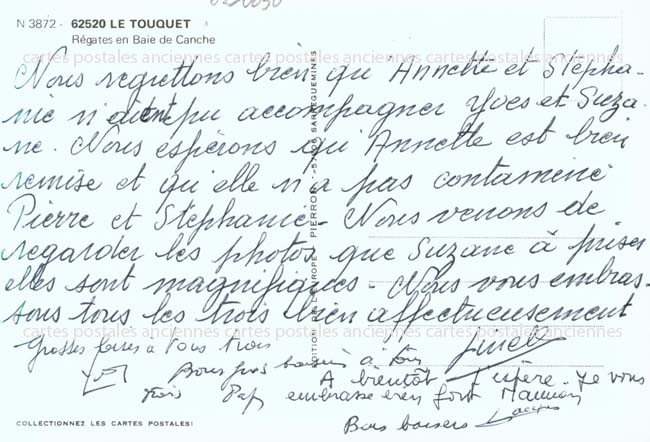 N 3872 - 62520 LE TOUQUET
Régates en Baie de Canche
cartes postales anciennes cartes postales anciennes
Nous regrettons bien qu'Annette et Stépha-
nie n'aient pu accompagner Yves et Suza-
ne. Nous espérons qu'Annette est bien
remise et qu'elle n'a pas contaminé
Pierre et Stéphanie - Nous venons de
regarder les photos que Suzane à prises
elles sont magnifiques - Nous vous embras-
sons tous les trois bien affectueusement
cartes postales anciennes cartes postales anciennes
Grosses bises à tous trois
Bons gros baisers à tous
trois Pap
A bientôt j'espère - Je vous
embrasse bien fort Maman
Bons baisers Jacques
EUROPE PIERRON - 57206 SARREGUEMINES
COLLECTIONNEZ LES CARTES POSTALES!